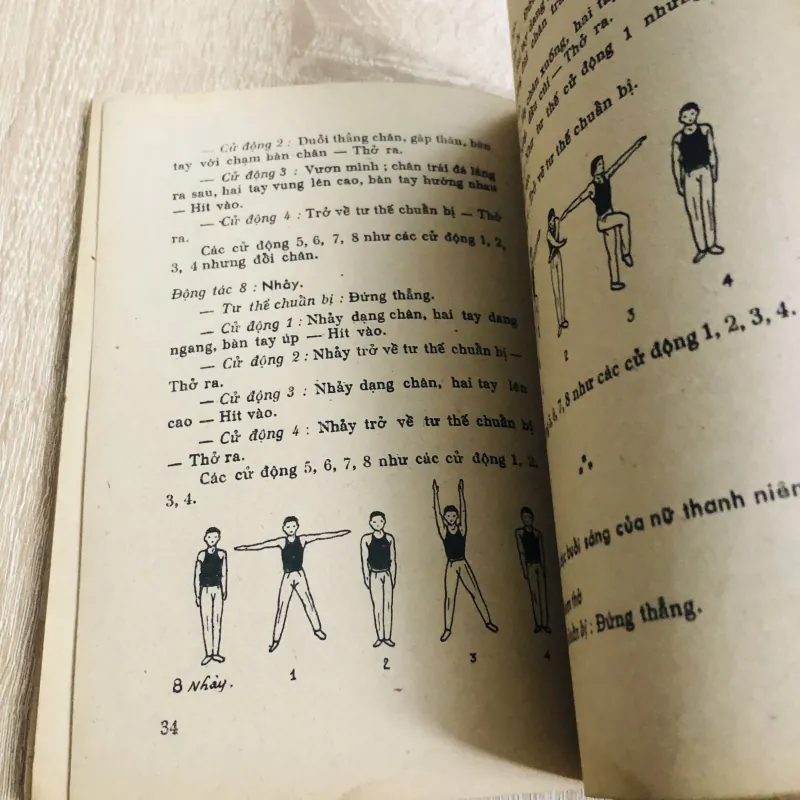 — Cử động 2 : Duỗi thẳng chân, gập thân, bàn
tay với chạm bàn chân — Thở ra.
— Cử động 3 : Vươn mình ; chân trái đá lăng
ra sau, hai tay vung lên cao, bàn tay hướng nhau
— Hít vào.
— Cử động 4 : Trở về tư thế chuẩn bị — Thở
ra.
Các cử động 5, 6, 7, 8 như các cử động 1, 2,
3, 4 nhưng đổi chân.
Động tác 8 : Nhảy.
— Tư thế chuẩn bị : Đứng thẳng.
— Cử động 1 : Nhảy dạng chân, hai tay dang
ngang, bàn tay úp — Hít vào.
— Cử động 2 : Nhảy trở về tư thế chuẩn bị —
Thở ra.
— Cử động 3 : Nhảy dạng chân, hai tay lên
cao — Hít vào.
— Cử động 4 : Nhảy trở về tư thế chuẩn bị
— Thở ra.
Các cử động 5, 6, 7, 8 như các cử động 1, 2,
3, 4.
8 Nhảy. 1 2 3 4
34
chân xuống, hai tay
— Thở ra.
tư thế cử động 1 nhưng
như tư thế chuẩn bị.
Trở về tư thế chuẩn bị.
2 3 4
6, 7, 8 như các cử động 1, 2, 3, 4.
buổi sáng của nữ thanh niên
thở
bị : Đứng thẳng.